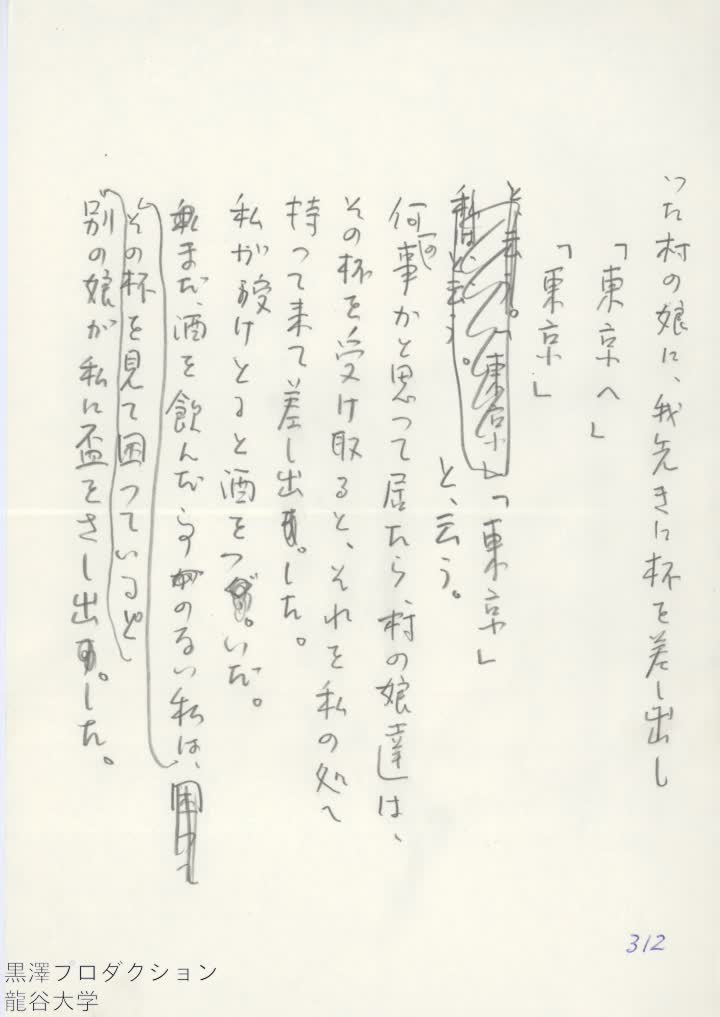 いた村の娘に、我先きに杯を差し出し
「東京へ」
「東京」
と、云う。「東京」「東京」
私は、と云う。と、云う。
何の事かと思って居たら、村の娘達は、
その杯を受け取ると、それを私の処へ
持って来て差し出した。
私が受けとると酒をついだ。
まだ、酒を飲んだ事のない私は、困って
その杯を見て困っていると
別の娘が私に盃をさし出した。
312
黒澤プロダクション
龍谷大学